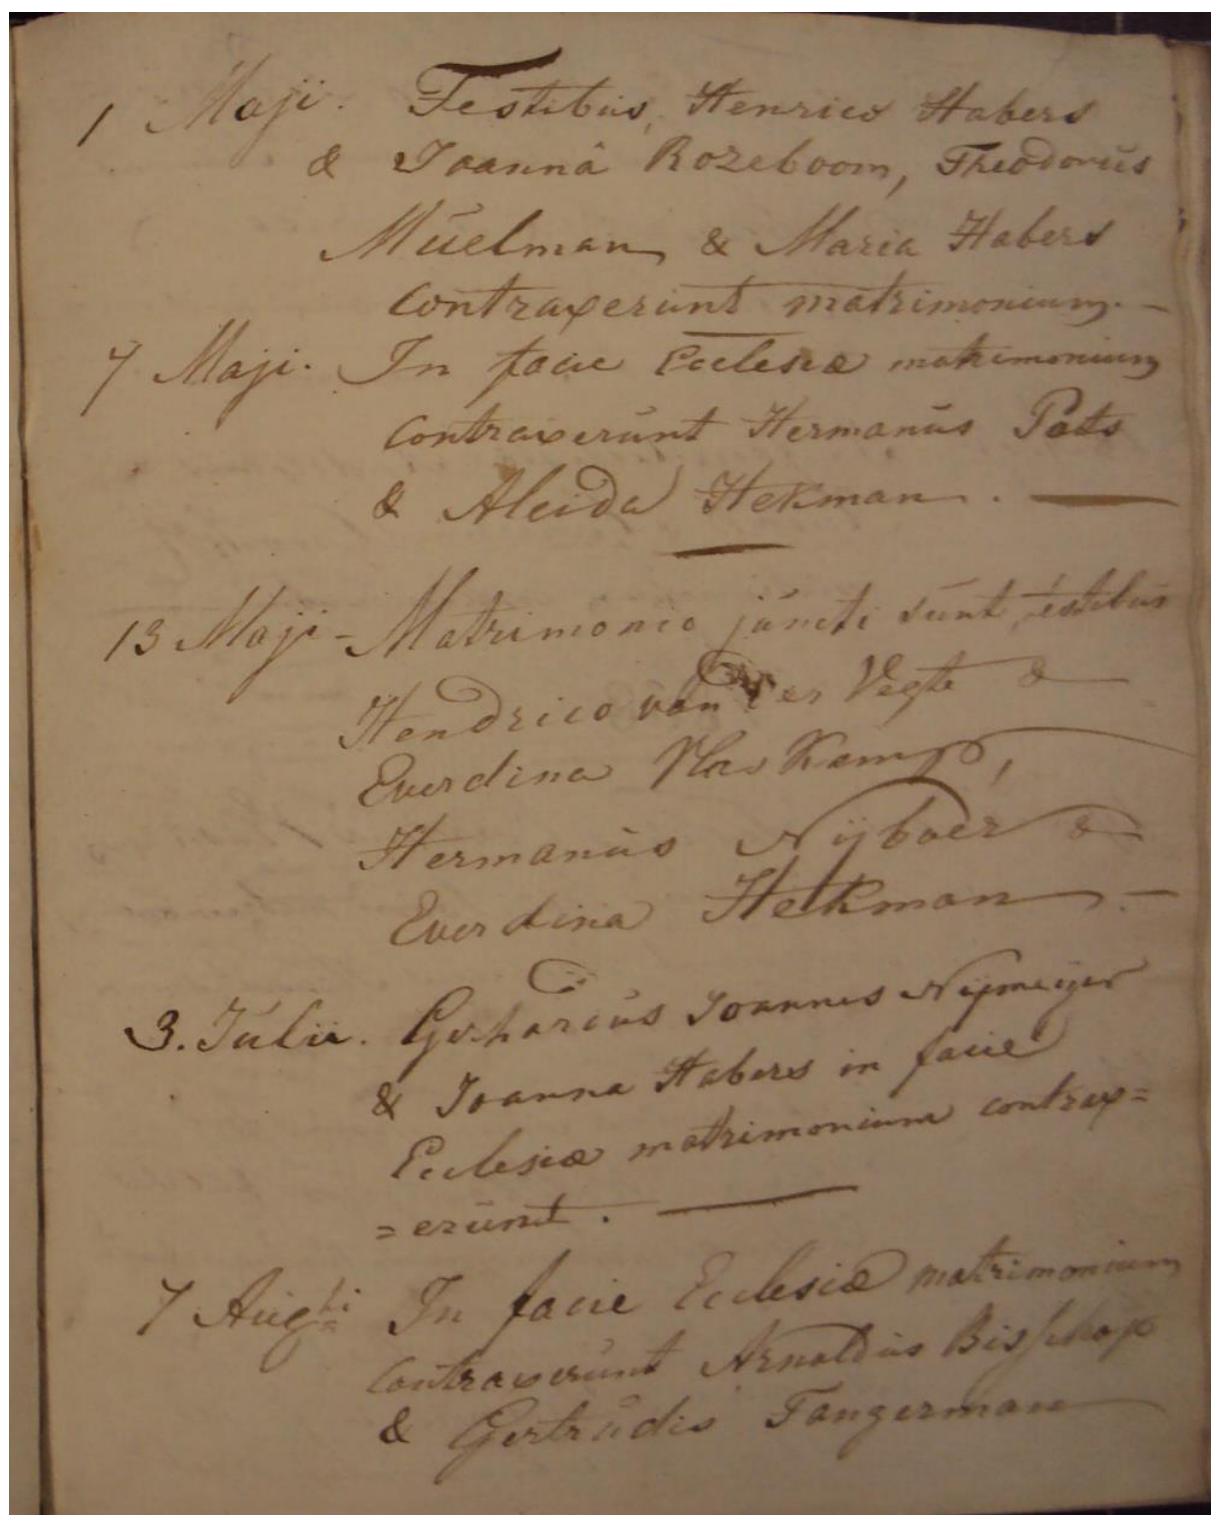 1 Maji. Testibus, Henrico Habers
& Joannâ Rozeboom, Theodorus
Muelman & Maria Habers
Contraxerunt matrimonium. —
7 Maji. In facie Ecclesiæ matrimonium
Contraxerunt Hermanus Pots
& Aleida Hekman. —
13 Maji - Matrimonio juncti sunt, testibus
Hendrico van der Vegte &
Everdina Vlas Kamp,
Hermanus Nijboer &
Everdina Hekman —
3. Julii. Joannes Nijmeijer
& Joanna Habers in facie
Ecclesiæ matrimonium contrax=
=erunt. —
7 Aug:ti In facie Ecclesiæ matrimonium
Contraxerunt Arnoldus Bisschop
& Gertrudis Tangerman